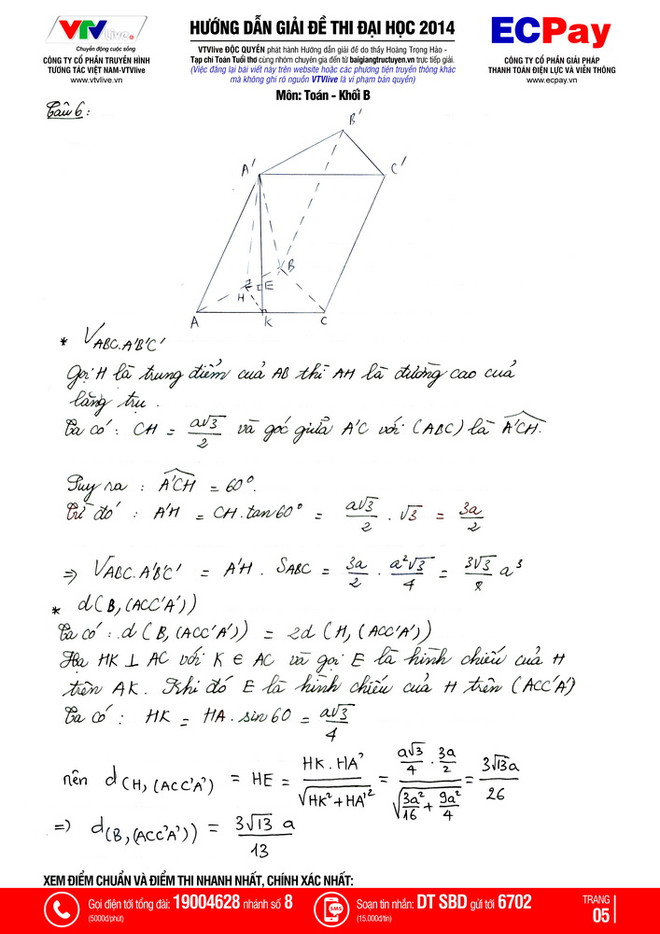 VTVlive
Chuyển động cuộc sống
CÔNG TY CỔ PHẦN TRUYỀN HÌNH
TƯƠNG TÁC VIỆT NAM-VTVlive
www.vtvlive.vn
HƯỚNG DẪN GIẢI ĐỀ THI ĐẠI HỌC 2014
VTVlive ĐỘC QUYỀN phát hành Hướng dẫn giải đề do thầy Hoàng Trọng Hảo -
Tạp chí Toán Tuổi thơ cùng nhóm chuyên gia đến từ baigiangtructuyen.vn trực tiếp giải.
(Việc đăng lại bài viết này trên website hoặc các phương tiện truyền thông khác
mà không ghi rõ nguồn VTVlive là vi phạm bản quyền)
Môn: Toán - Khối B
ECPay
CÔNG TY CỔ PHẦN GIẢI PHÁP
THANH TOÁN ĐIỆN LỰC VÀ VIỄN THÔNG
www.ecpay.vn
Câu 6:
B'
A' C'
B
H E
A K C
* V_ABC.A'B'C'
Gọi H là trung điểm của AB thì AH là đường cao của
lăng trụ.
Ta có: CH = a√3/2 và góc giữa A'C với (ABC) là A'CH.
Suy ra: A'CH = 60°.
Từ đó: A'H = CH.tan60° = a√3/2 . √3 = 3a/2
⇒ V_ABC.A'B'C' = A'H . S_ABC = 3a/2 . a²√3/4 = 3√3/8 a³
* d(B,(ACC'A'))
Ta có: d(B,(ACC'A')) = 2d(H,(ACC'A'))
Hạ HK ⊥ AC với K ∈ AC và gọi E là hình chiếu của H
trên AK. Khi đó E là hình chiếu của H trên (ACC'A')
Ta có: HK = HA.sin60 = a√3/4
nên d(H,(ACC'A')) = HE = HK.HA'/√(HK²+HA'²) = (a√3/4 . 3a/2)/√(3a²/16 + 9a²/4) = 3√13a/26
⇒ d(B,(ACC'A')) = 3√13 a/13
XEM ĐIỂM CHUẨN VÀ ĐIỂM THI NHANH NHẤT, CHÍNH XÁC NHẤT:
Gọi điện tới tổng đài: 19004628 nhánh số 8
(5000đ/phút)
SMS
Soạn tin nhắn: DT SBD gửi tới 6702
(15.000đ/tin)
TRANG
05